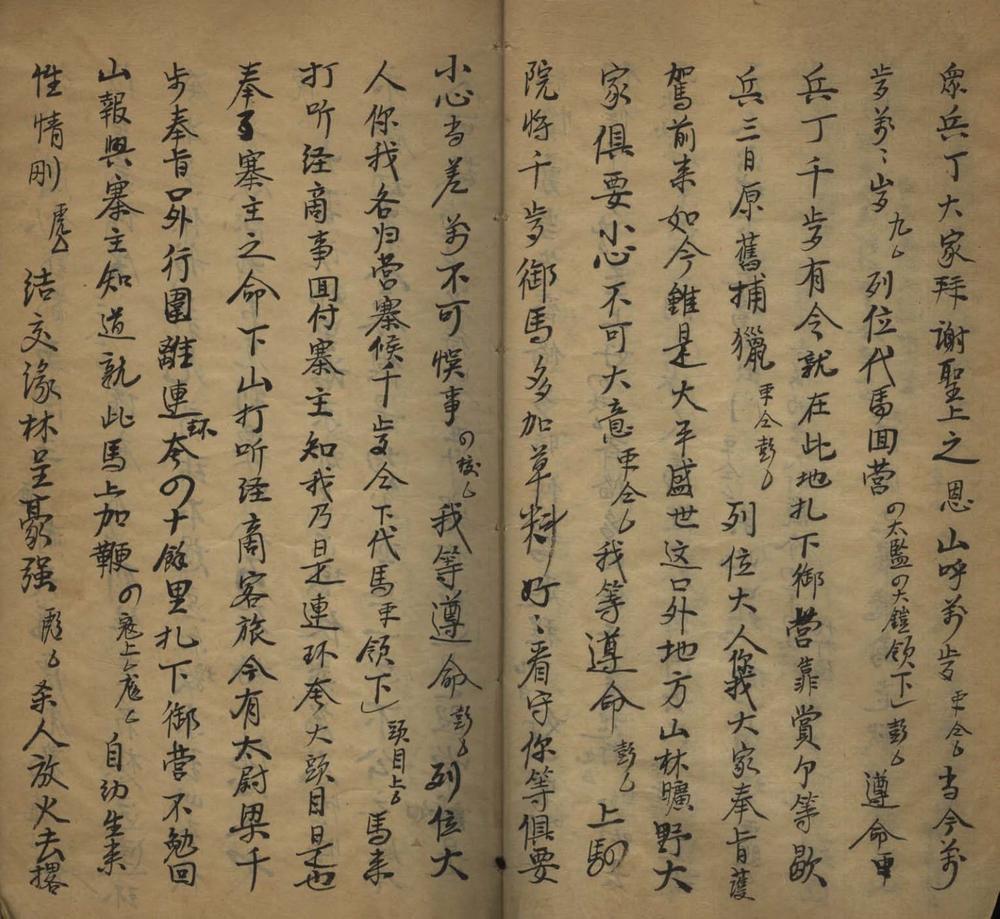 眾兵丁大家拜謝聖上之恩山呼萬歩更仝白当今萬
歩萬〻歩九白列位代馬囬营の太監の大鎧領下彭白遵命更
兵丁千歩有令就在此地扎下御營靠賞尔等歇
兵三日原舊捕獵更仝彭白列位大人你我大家奉旨護
駕前来如今雖是太平盛世这口外地方山林曠野大
家俱要小心不可大意更仝白我等遵命彭白上駟
院将千歩御馬多加草料好〻看守你等俱要
小心当差萬不可悮事の校白我等遵命彭白列位大
人你我各归营寨候千歩令下代馬更領下頭目上白馬来
打听经商事囬付寨主知我乃是連环套大頭目是也
奉了寨主之命下山打听经商客旅今有太尉梁千
歩奉旨口外行圍離連环套の十餘里扎下御营不勉回
山報與寨主知道就此馬上加鞭の寇上虎白自幼生来
性情刚虎白结交绿林呈豪强彪白杀人放火去撂